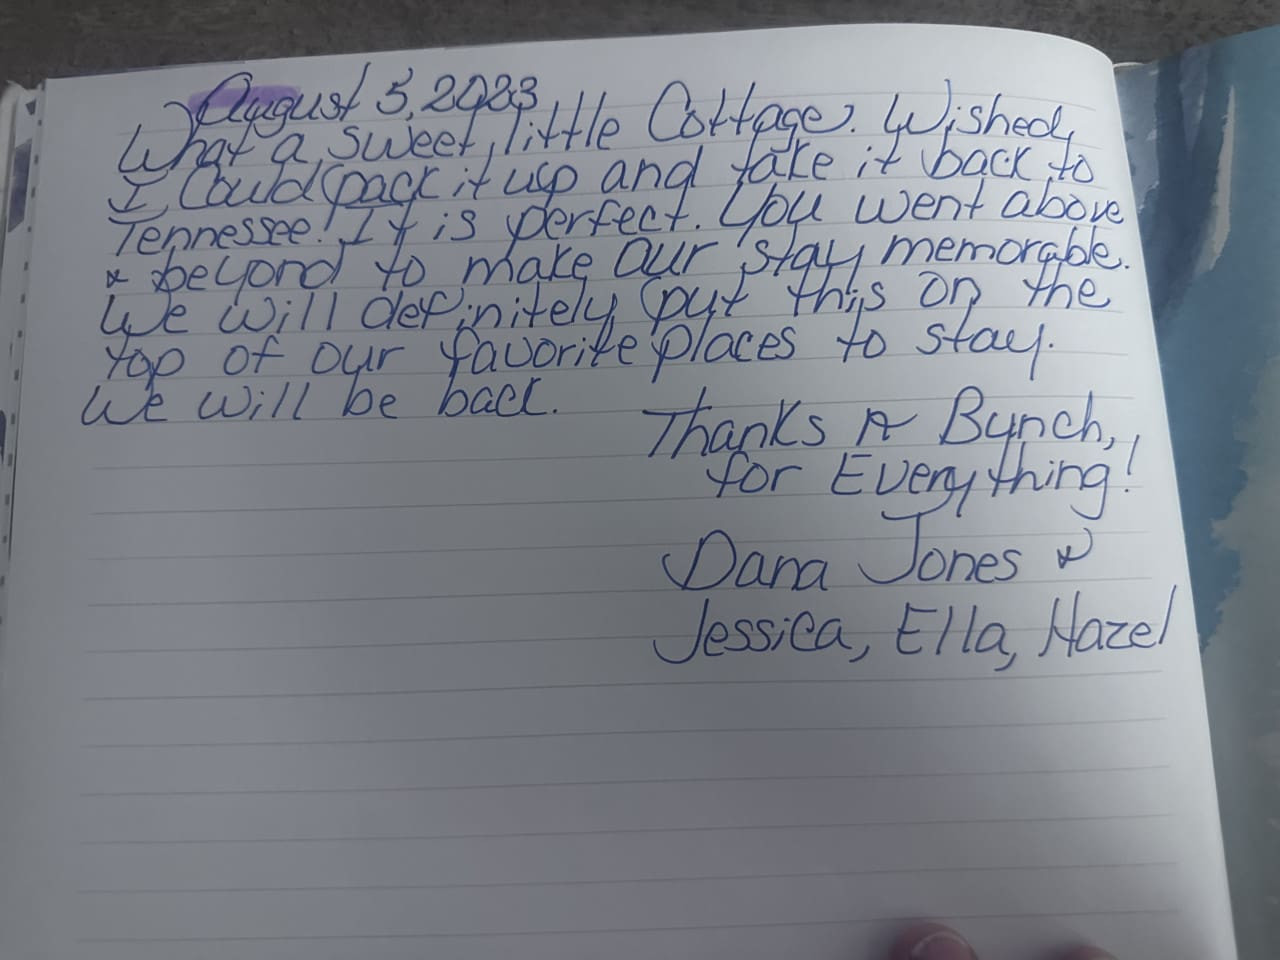 August 5, 2023
What a sweet little Cottage. Wished
I Could pack it up and take it back to
Tennessee! It is perfect. You went above
& beyond to make our stay memorable.
We will definitely put this on the
top of our favorite places to stay.
We will be back.
Thanks A Bunch,
for Everything!
Dana Jones &
Jessica, Ella, Hazel